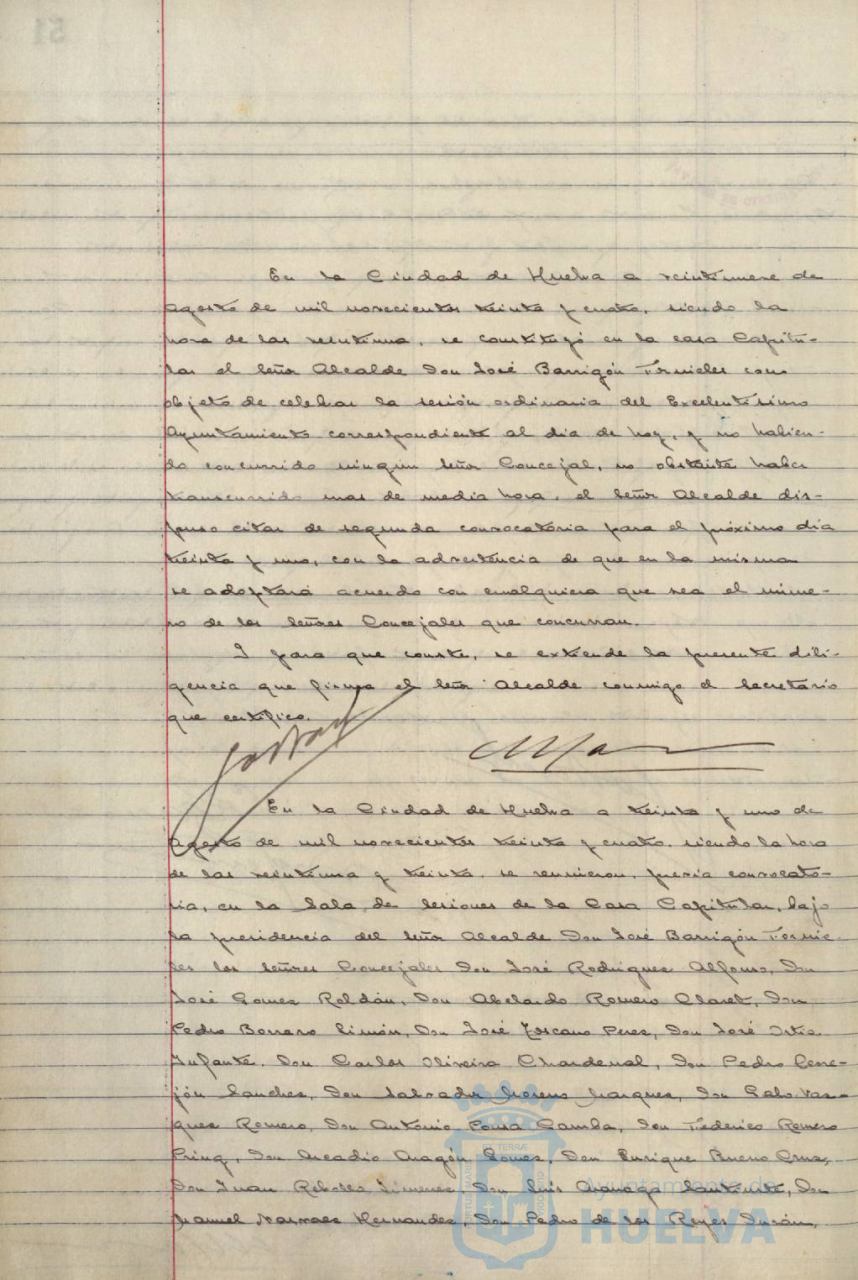 En la Ciudad de Huelva a veintinueve de
Agosto de mil novecientos treinta y cuatro, siendo la
hora de las veintiuna, se constituyó en la casa Capitu-
lar el Señor Alcalde Don José Barrigón Fornieles con
objeto de celebrar la sesión ordinaria del Excelentísimo
Ayuntamiento correspondiente al dia de hoy, y no habien-
do concurrido ningun Señor Concejal, no obstante haber
transcurrido mas de media hora, el Señor Alcalde dis-
puso citar de segunda convocatoria para el próximo dia
treinta y uno, con la advertencia de que en la misma
se adoptará acuerdo con cualquiera que sea el núme-
ro de los Señores Concejales que concurran.
Y para que conste, se extiende la presente dili-
gencia que firma el Señor Alcalde conmigo el Secretario
que certifico.
En la Ciudad de Huelva a treinta y uno de
Agosto de mil novecientos treinta y cuatro, siendo la hora
de las veintiuna y treinta, se reunieron, previa convocato-
ria, en la Sala de Sesiones de la Casa Capitular, bajo
la presidencia del Señor Alcalde Don José Barrigón Fornie-
les los Señores Concejales Don José Rodríguez Alfonso, Don
José Gomez Roldán, Don Abelardo Romero Claret, Don
Pedro Borrero Limón, Don José Toscano Perez, Don José Ortiz
Infante, Don Carlos Oliveira Chardenal, Don Pedro Cere-
jón Sanchez, Don Salvador Moreno Marquez, Don Galo Vaz-
quez Romero, Don Antonio Pousa Camba, Don Federico Romero
Pring, Don Arcadio Aragón Gomez, Don Enrique Bueno Cruz,
Don Juan Rebollo Jimenez, Don Luís Don
Manuel Narvaez Hernandez, Don Pedro de los Reyes Durán,
Ayuntamiento de
HUELVA